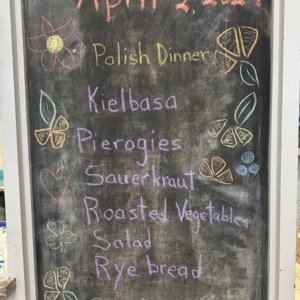 April 2, 2024
Polish Dinner
Kielbasa
Pierogies
Sauerkraut
Roasted Vegetables
Salad
Rye bread